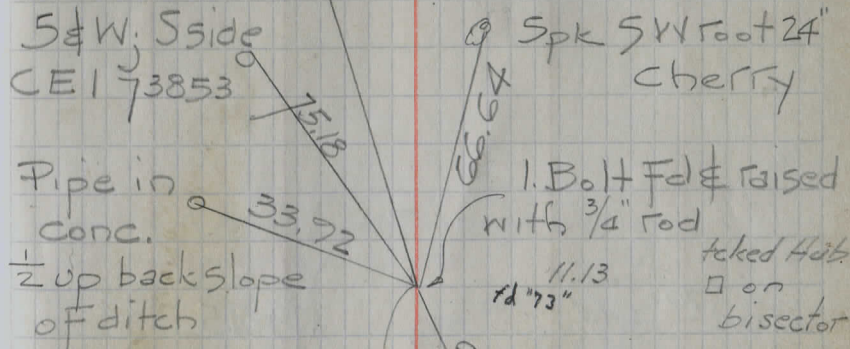 S&W; S side
CEI 73853
75.18
Pipe in
conc.
33.72
1/2 up backslope
of ditch
Spk SW root 24"
Cherry
66.64
1. Bolt Fd & raised
with 3/4" rod
11.13
fd "73"
tcked Hub
□ on
bisector